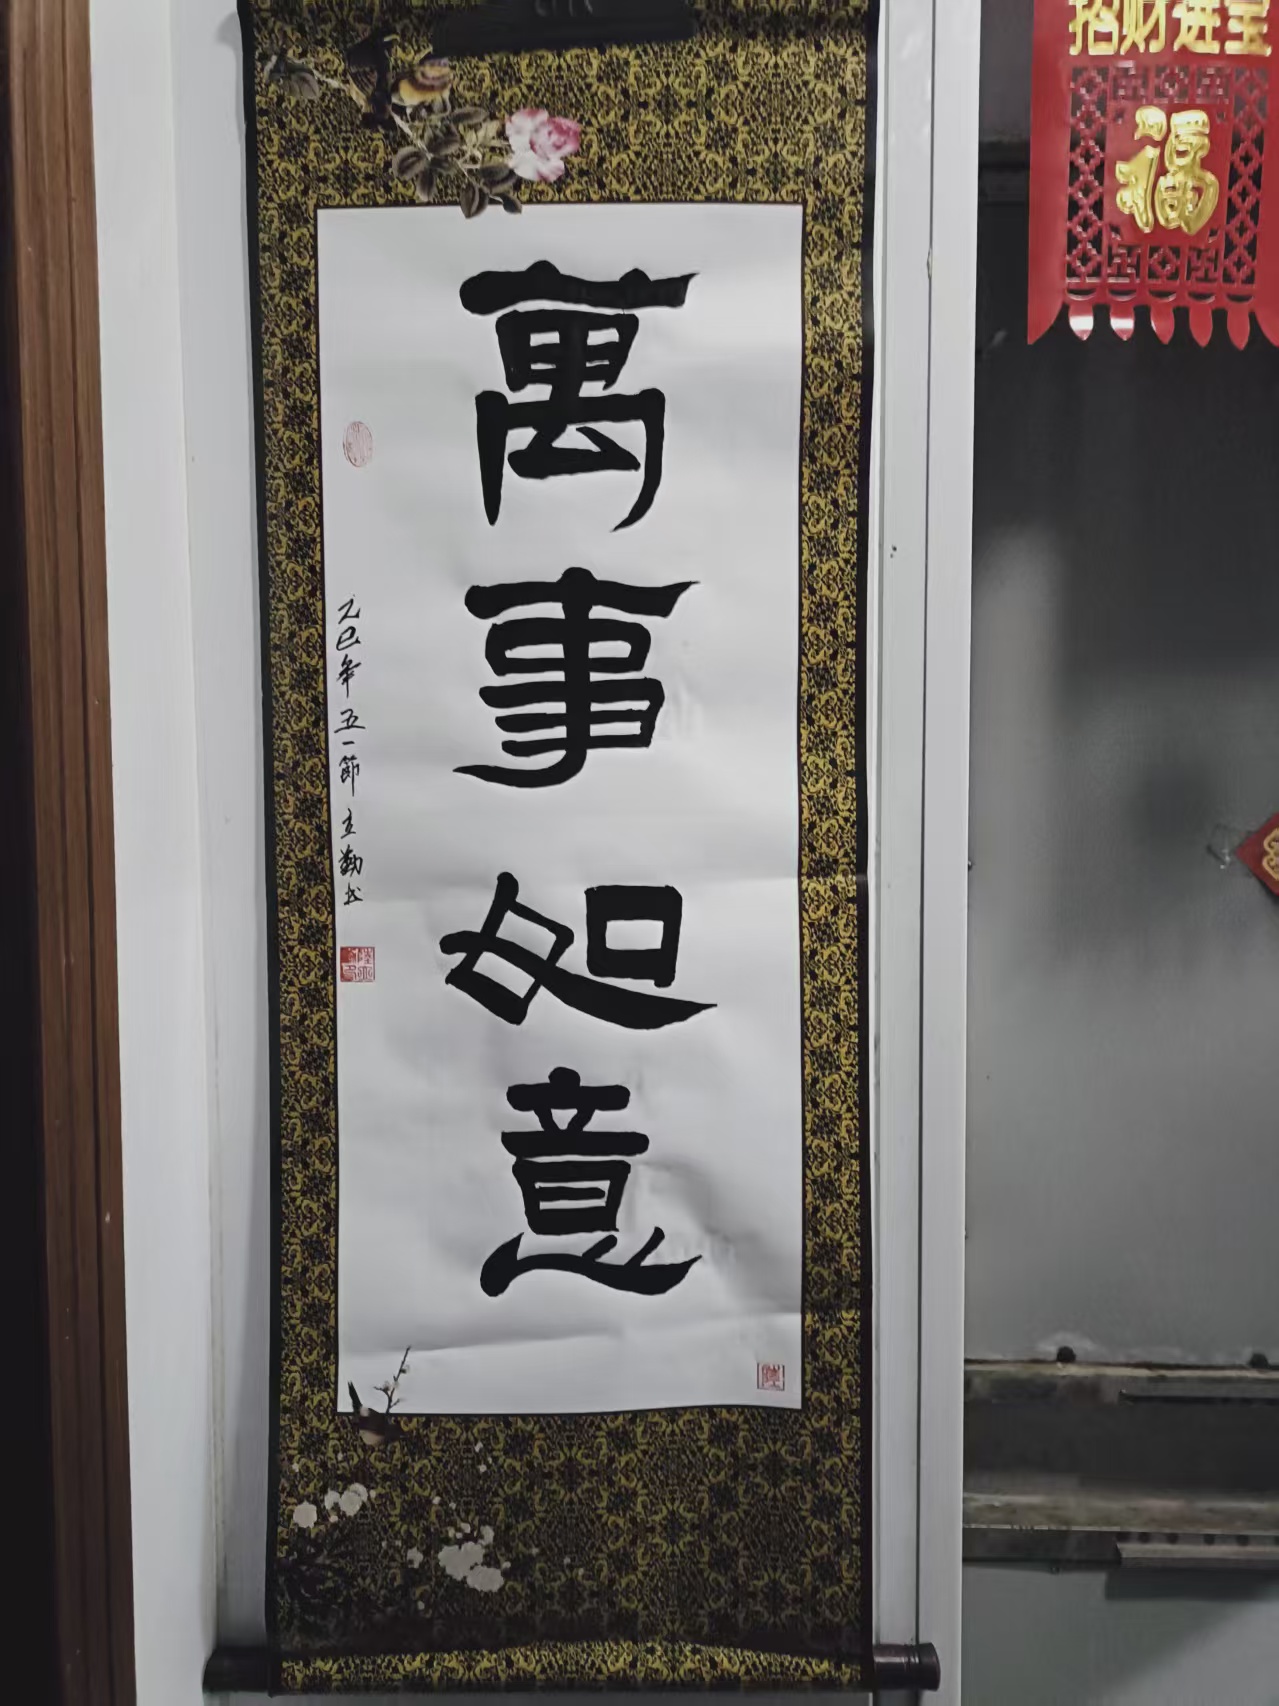 萬事如意
乙巳年五一節 立勤书
招财进宝
福